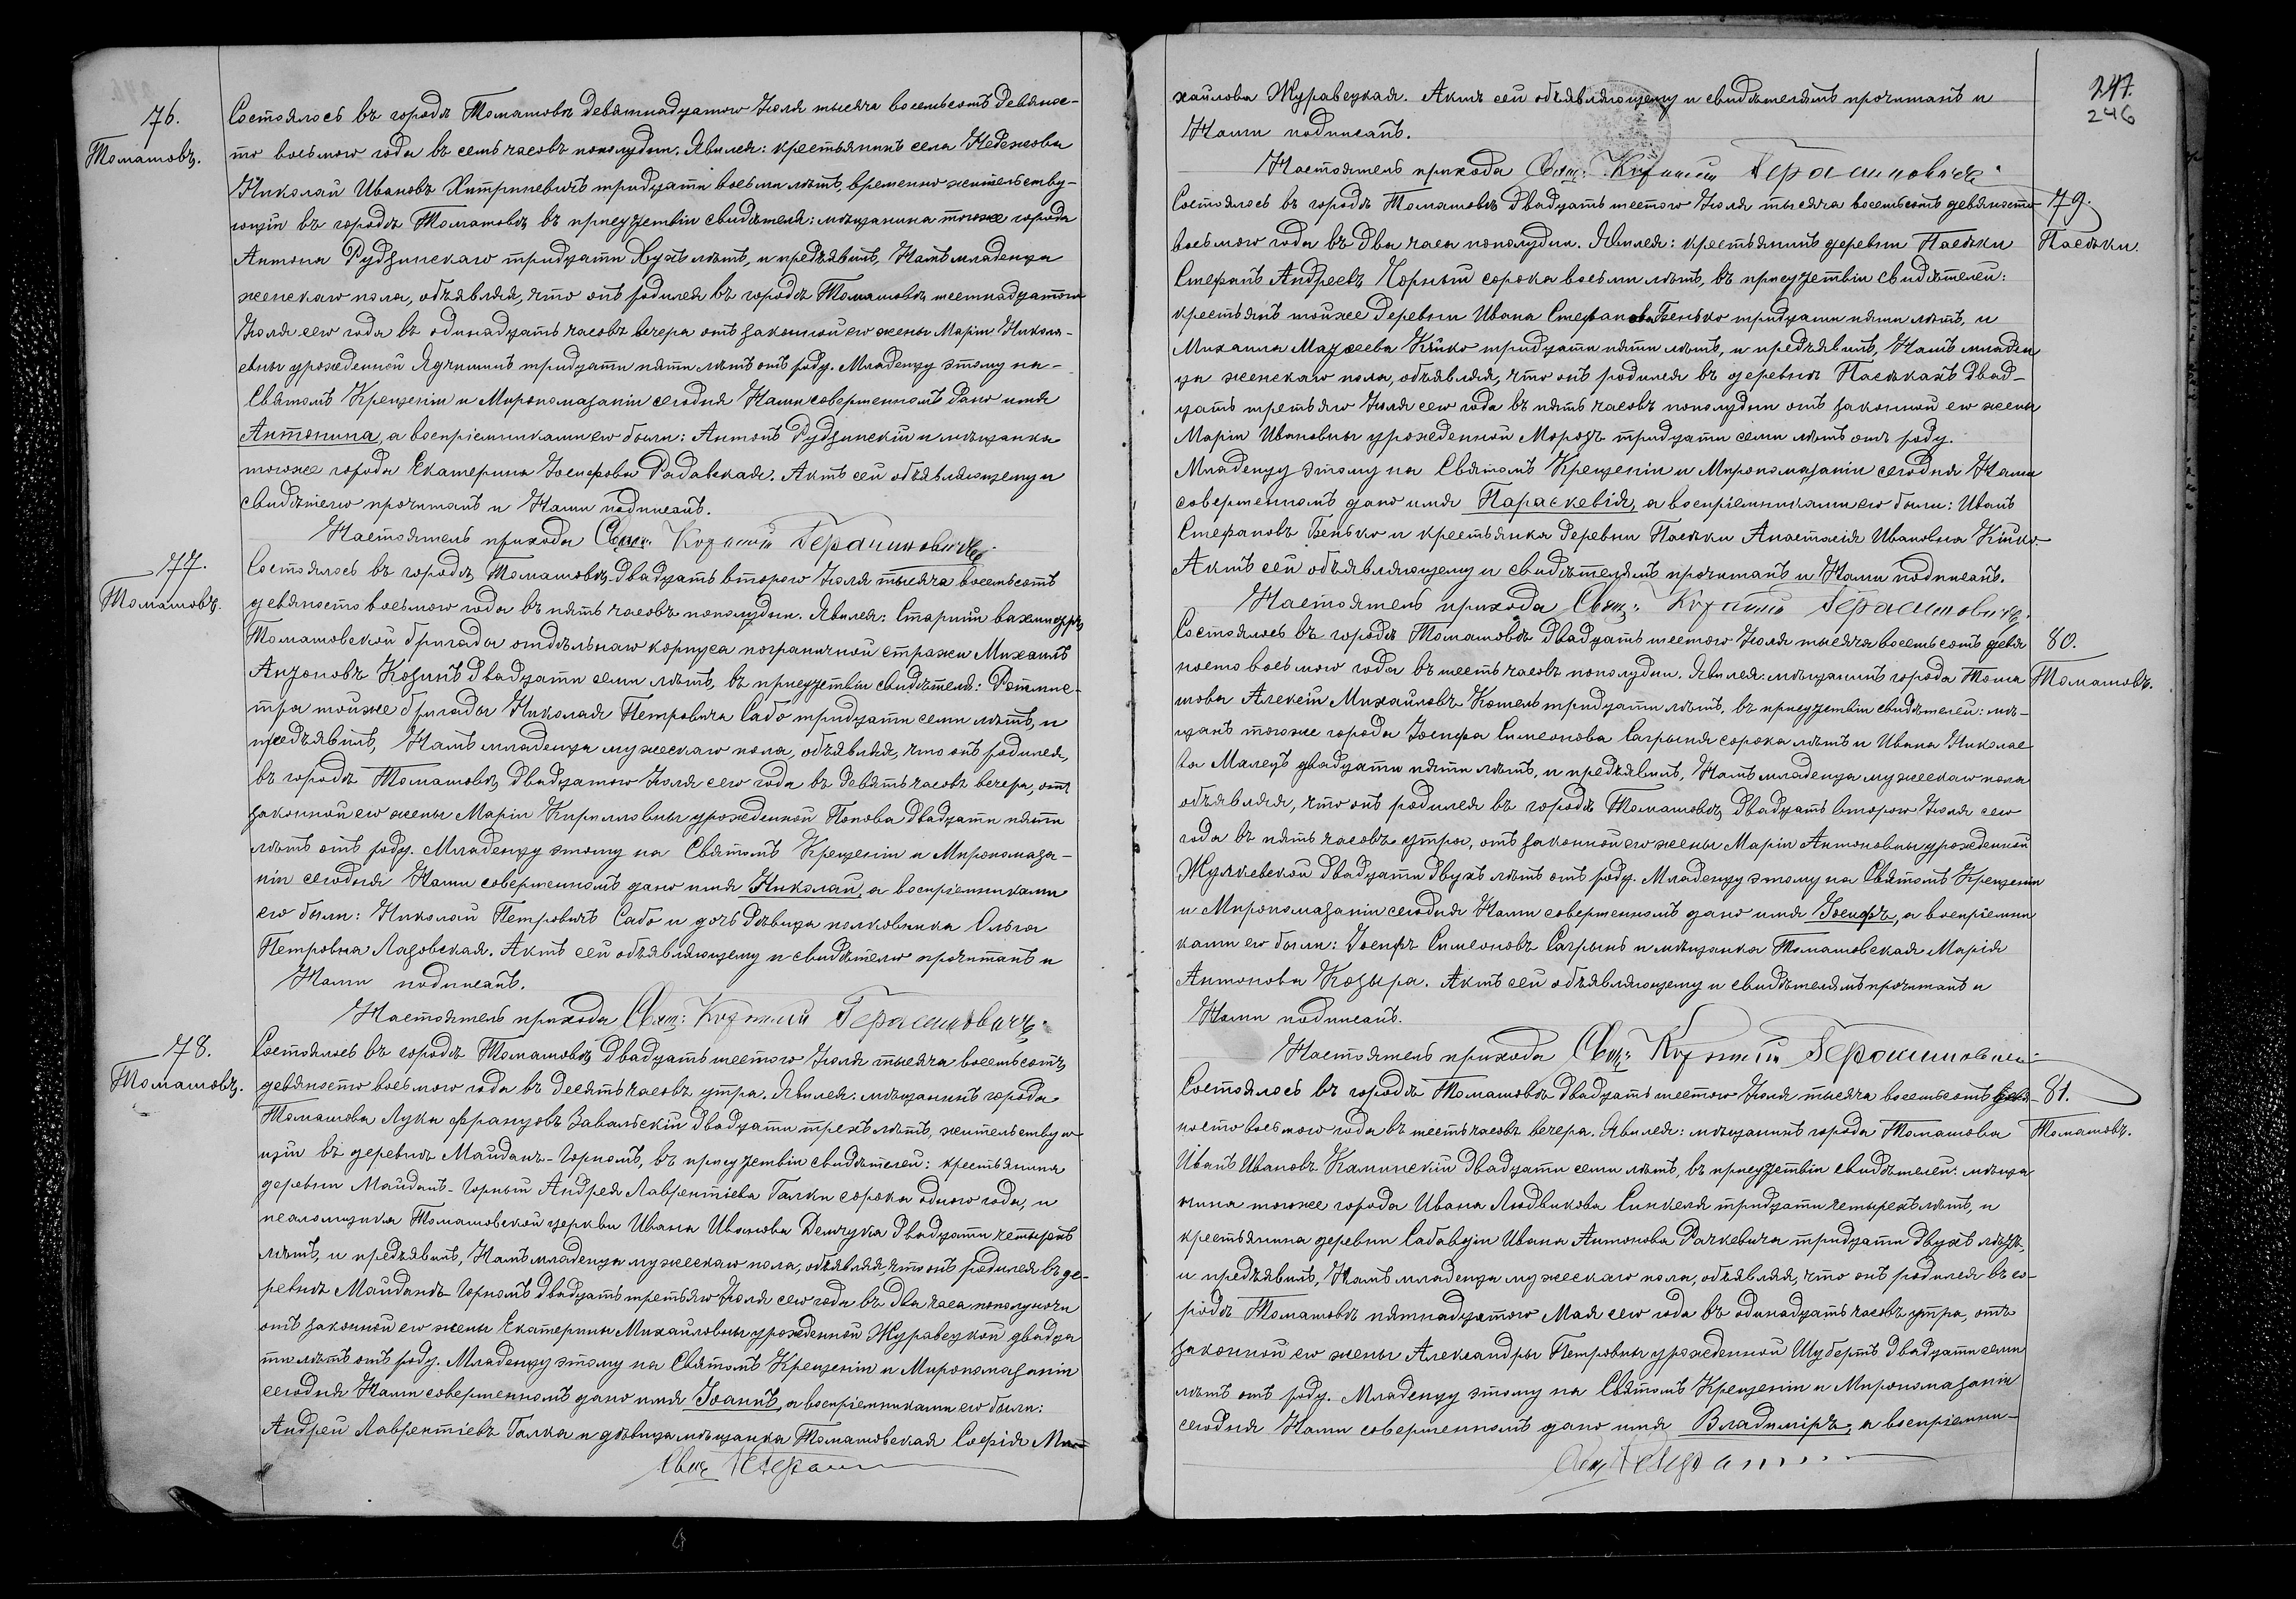 76.
Томашовъ.
Состоялось въ городѣ Томашовѣ девятнадцатого Іюля тысяча восемьсотъ девянос-
то восьмого года въ семь часовъ пополудни. Явился: крестьянинъ села Недежова
Николай Ивановъ Хитриневичъ тридцати восьми лѣтъ, временно жительству-
ющій въ городѣ Томашовѣ, въ присутствіи свидѣтеля: мѣщанина тогоже города
Антона Рудзинскаго тридцати двухъ лѣтъ, и предъявилъ, Намъ младенца
женскаго пола, объявляя, что онъ родился въ городѣ Томашовѣ шестнадцатого
Іюля сего года въ одинадцать часовъ вечера отъ законной его жены Маріи Никола-
евны урожденной Ядчишинъ тридцати пяти лѣтъ отъ роду. Младенцу этому на-
Святомъ Крещеніи и Миропомазаніи сегодня Нами совершенномъ дано имя
Антонина, а воспріемниками его были: Антонъ Рудзинскій и мѣщанка
тогоже города Екатерина Іосифова Радавская. Актъ сей объявляющему и
свидѣтелю прочитанъ и Нами подписанъ.
Настоятель прихода Свящ: Герасимовичъ
77.
Томашовъ.
Состоялось въ городѣ Томашовѣ двадцать второго Іюля тысяча восемьсотъ
девяносто восьмого года въ пять часовъ пополудни. Явился: Старшій вахмистръ
Томашовской бригады отдѣльнаго корпуса пограничной стражи Михаилъ
Антоновъ Козинъ двадцати семи лѣтъ, въ присутствіи свидѣтеля: Ротмис-
тра тойже бригады Николая Петровича Сабо тридцати семи лѣтъ, и
предъявилъ, Намъ младенца мужескаго пола, объявляя, что онъ родился,
въ городѣ Томашовѣ, двадцатого Іюля сего года въ девять часовъ вечера, отъ
законной его жены Маріи Кирилловны урожденной Попова двадцати пяти
лѣтъ отъ роду. Младенцу этому на Святомъ Крещеніи и Миропомаза-
ніи сегодня Нами совершенномъ дано имя Николай, а воспріемниками
его были: Николай Петровичъ Сабо и дочь дѣвица полковника Ольга
Петровна Лазовская. Актъ сей объявляющему и свидѣтелю прочитанъ и
Нами подписанъ.
Настоятель прихода Свящ: Герасимовичъ
78.
Томашовъ.
Состоялось въ городѣ Томашовѣ, двадцать шестого Іюля тысяча восемьсотъ
девяносто восьмого года въ десять часовъ утра. Явился: мѣщанинъ города
Томашова Лука Францовъ Завальскій двадцати трехъ лѣтъ, жительствую-
щій въ деревнѣ Майданъ-Горномъ, въ присутствіи свидѣтелей: крестьянина
деревни Майданъ-Горный Андрея Лаврентіева Галки сорока одного года, и
псаломщика Томашовской церкви Ивана Иванова Демчука двадцати четырехъ
лѣтъ, и предъявилъ, Намъ младенца мужескаго пола, объявляя, что онъ родился въ де-
ревнѣ Майданѣ-Горномъ двадцать третьяго Іюля сего года въ два часа пополуночи
отъ законной его жены Екатерины Михайловны урожденной Журавецкой двадца
ти лѣтъ отъ роду. Младенцу этому на Святомъ Крещеніи и Миропомазаніи
сегодня Нами совершенномъ дано имя Іоаннъ, а воспріемниками его были:
Андрей Лаврентіевъ Галка и дѣвица мѣщанка Томашовская Софія Ми-
Свящ
247.
246
хайлова Журавецкая. Актъ сей объявляющему и свидѣтелямъ прочитанъ и
Нами подписанъ.
Настоятель прихода Свящ: Герасимовичъ
79.
Пасѣки.
Состоялось въ городѣ Томашовѣ двадцать шестого Іюля тысяча восемьсотъ девяносто
восьмого года въ два часа пополудни. Явился: крестьянинъ деревни Пасѣки
Стефанъ Андреевъ Чорный сорока восьми лѣтъ, въ присутствіи свидѣтелей:
крестьянъ тойже деревни Ивана Стефанова Бенько тридцати пяти лѣтъ, и
Михаила Матѳеева Кйко тридцати пяти лѣтъ, и предъявилъ, Намъ младен
ца женскаго пола, объявляя, что онъ родился въ деревнѣ Пасѣкахъ двад-
цать третьяго Іюля сего года въ пять часовъ пополудни отъ законной его жены
Маріи Ивановны урожденной Морозъ тридцати семи лѣтъ отъ роду.
Младенцу этому на Святомъ Крещеніи и Миропомазаніи сегодня Нами
совершенномъ дано имя Параскевія, а воспріемниками его были: Иванъ
Стефановъ Бенько и крестьянка деревни Пасѣки Анастасія Ивановна Кйко.
Актъ сей объявляющему и свидѣтелямъ прочитанъ и Нами подписанъ.
Настоятель прихода Свящ: Герасимовичъ.
80.
Томашовъ.
Состоялось въ городѣ Томашовѣ двадцать шестого Іюля тысяча восемьсотъ девя
носто восьмого года въ шесть часовъ пополудни. Явился: мѣщанинъ города Тома
шова Алексій Михайловъ Котель тридцати лѣтъ, въ присутствіи свидѣтелей: мѣ-
щанъ тогоже города Іосифа Симеонова Сагрыня сорока лѣтъ и Ивана Николае
ва Малецъ двадцати пяти лѣтъ, и предъявилъ, Намъ младенца мужескаго пола
объявляя, что онъ родился въ городѣ Томашовѣ, двадцать второго Іюля сего
года въ пять часовъ утра, отъ законной его жены Маріи Антоновны урожденной
Жулкевской двадцати двухъ лѣтъ отъ роду. Младенцу этому на Святомъ Крещеніи
и Миропомазаніи сегодня Нами совершенномъ дано имя Іосифъ, а воспріемни
ками его были: Іосифъ Симеоновъ Сагрынь и мѣщанка Томашовская Марія
Антонова Козыра. Актъ сей объявляющему и свидѣтелямъ прочитанъ и
Нами подписанъ.
Настоятель прихода Свящ: Герасимовичъ
81.
Томашовъ.
Состоялось въ городѣ Томашовѣ двадцать шестого Іюля тысяча восемьсотъ девя-
носто восьмого года въ шесть часовъ вечера. Явился: мѣщанинъ города Томашова
Иванъ Ивановъ Калинскій двадцати семи лѣтъ, въ присутствіи свидѣтелей: мѣща
нина тогоже города Ивана Людвикова Синкеля тридцати четырехъ лѣтъ, и
крестьянина деревни Сабавдіи Ивана Антонова Рачкевича тридцати двухъ лѣтъ,
и предъявилъ, Намъ младенца мужескаго пола, объявляя, что онъ родился въ го-
родѣ Томашовѣ пятнадцатого Мая сего года въ одинадцать часовъ утра, отъ
законной его жены Александры Петровны урожденной Шубертъ двадцати семи
лѣтъ отъ роду. Младенцу этому на Святомъ Крещеніи и Миропомазаніи
сегодня Нами совершенномъ дано имя Владиміръ, а воспріемни-
Свящ